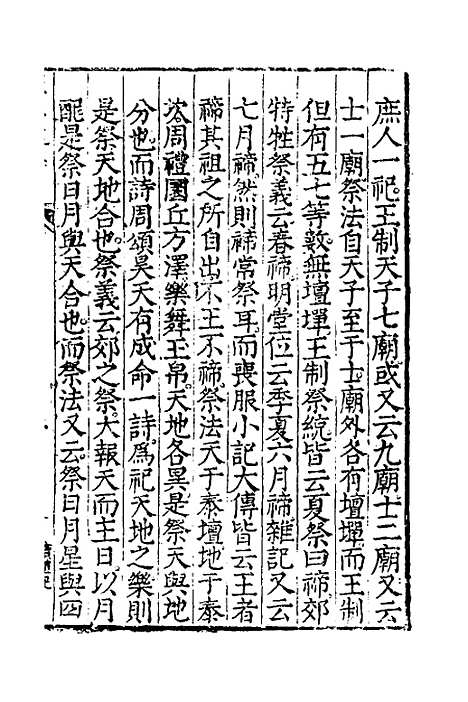 庶人一祀王制天子七廟或又云九廟十二廟又云
士一廟祭法自天子至于士廟外各有壇墠而王制
但有五七等數無壇墠王制祭統皆云夏祭曰禘郊
特牲祭義云春禘明堂位云季夏六月禘雜記又云
七月禘然則禘常祭耳而喪服小記大傳皆云王者
禘其祖之所自出不王不禘祭法天于泰壇地于泰
坎周禮圜丘方澤樂舞玉帛天地各異是祭天與地
分也而詩周頌昊天有成命一詩爲祀天地之樂則
是祭天地合也祭義云郊之祭大報天而主日以月
配是祭日月與天合也而祭法又云祭日月星與四